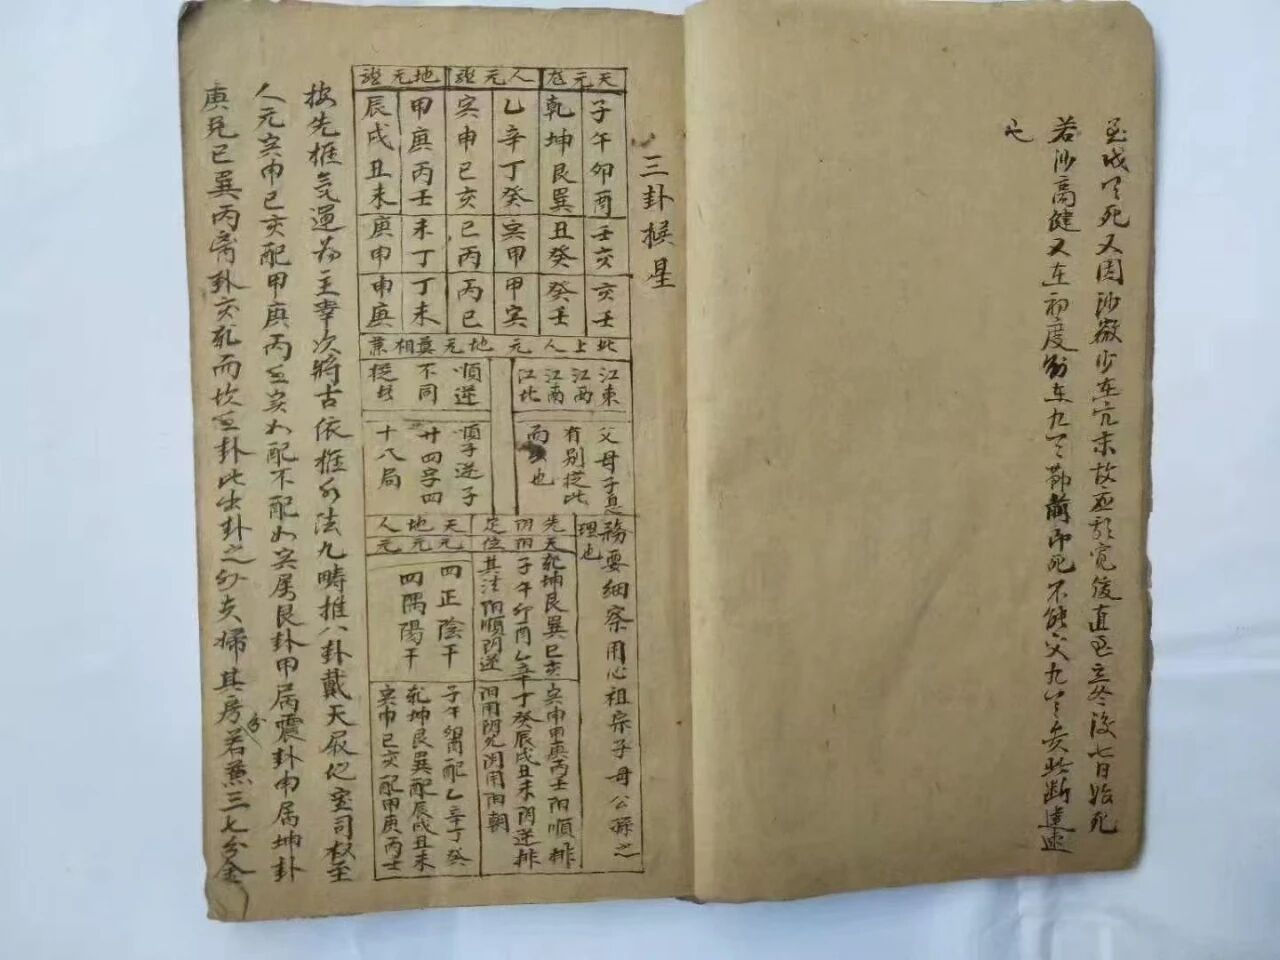 死又因沙微沙在亢末故
直至立冬後七日始死
若沙高健又在初度
前即死不能
此断遠速
也
三卦掞星
天元龙
人元
地元
子午卯酉
壬亥
亥壬
乾坤艮巽
丑癸
癸壬
乙辛丁癸
寅甲
甲寅
寅申巳亥
巳丙
丙巳
甲庚丙壬
未丁
丁未
辰戌丑未
庚申
申庚
此上人元地元真相兼
江東
江西
江南
江北
順逆
不同
父母子息
有别從此
而 也
順子逆子
廿四字四
十八局
理也
務要細察用心祖宗子母公孫之
先天
阴阳
定位
乾坤艮巽巳亥寅申甲庚丙壬阳順排
子午卯酉乙辛丁癸辰戌丑未阴逆排
其法阳順阴逆阳用阴 阴用阳朝
天元
地元
人元
四正陰干
四隅陽干
子午卯酉配乙辛丁癸
乾坤艮巽配辰戌丑未
寅申巳亥配甲庚丙壬
按先推氣運為主幸次將古依推 法九疇推八卦戴天履地室司权至
人元寅申巳亥配甲庚丙壬寅如配不配如寅属艮卦甲属震卦申属坤卦
庚兑巳巽丙离卦亥乾而坎壬卦此出卦之 夫婦其房分若兼三七分金